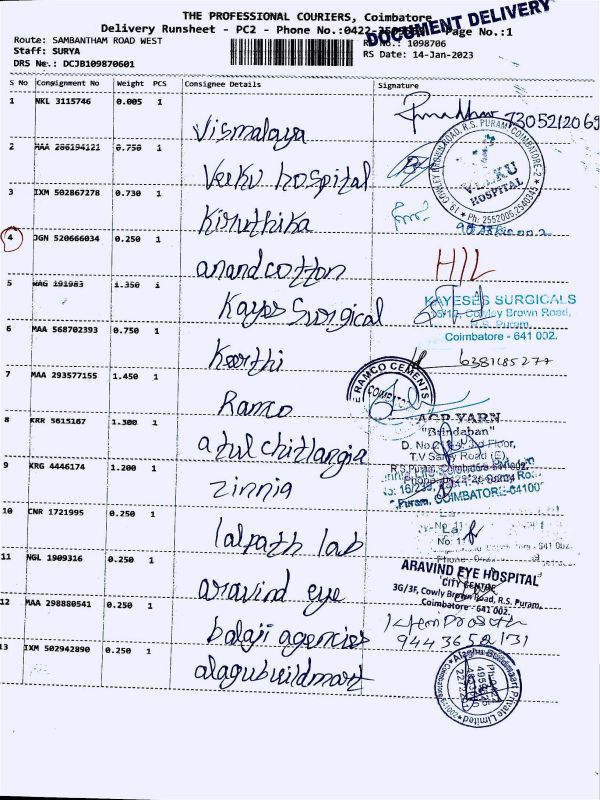 THE PROFESSIONAL COURIERS, Coimbatore
Delivery Runsheet - PC2 - Phone No.:0422- Page No.:1
DOCUMENT DELIVERY
Route: SAMBANTHAM ROAD WEST
Staff: SURYA
DRS No.: DCJB109870601
RS No.: 1098706
RS Date: 14-Jan-2023
S No Consignment No Weight PCS Consignee Details Signature
1 NKL 3115746 0.005 1 Vismalaya 7305212069
2 MAA 286194121 0.750 1 Veeku hospital
COWLEY BROWN ROAD, R.S. PURAM, COIMBATORE-2
VEEKU HOSPITAL
Ph: 2552006, 2540345
3 IXM 502867278 0.730 1 Kiruthika
4 JGN 520666034 0.250 1 anandcotton H/L
5 WAG 191983 1.350 1 Kayes Surgical
KAYESES SURGICALS
Cowley Brown Road,
R.S. Puram,
Coimbatore - 641 002.
6 MAA 568702393 0.750 1 Keerthi
7 MAA 293577155 1.450 1 Ramco
RAMCO CEMENTS
8 KRR 5615167 1.300 1 atulchitlangia
AGR YARN
"Brindaban"
D. No. Floor,
T.V Samy Road (E),
R.S.Puram, Coimbatore 641 002.
9 KRG 4446174 1.200 1 zinnia
Puram, COIMBATORE-641002
10 CNR 1721995 0.250 1 lalpath lab
11 NGL 1909316 0.250 1 aravind eye
ARAVIND EYE HOSPITAL
CITY CENTRE
3G/3F, Cowly Brown Road, R.S. Puram,
Coimbatore - 641 002.
12 MAA 298880541 0.250 1 balaji agencies
13 IXM 502942890 0.250 1 alagubuildmart
Private Limited